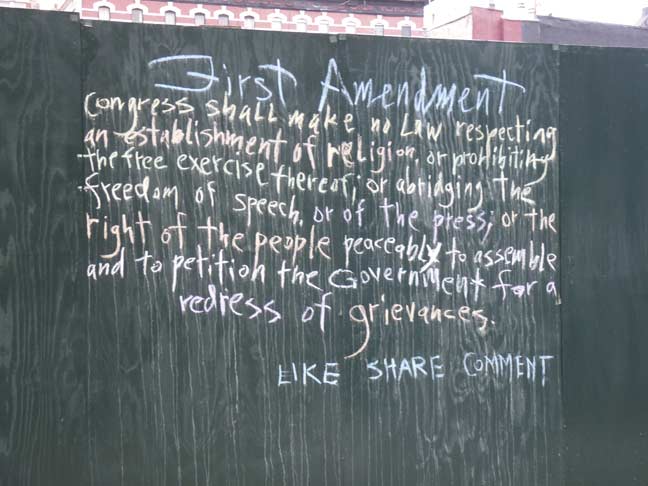 First Amendment
Congress shall make no Law respecting
an establishment of religion, or prohibiting
the free exercise thereof; or abridging the
freedom of speech, or of the press; or the
right of the people peaceably to assemble
and to petition the Government for a
redress of grievances.
LIKE SHARE COMMENT